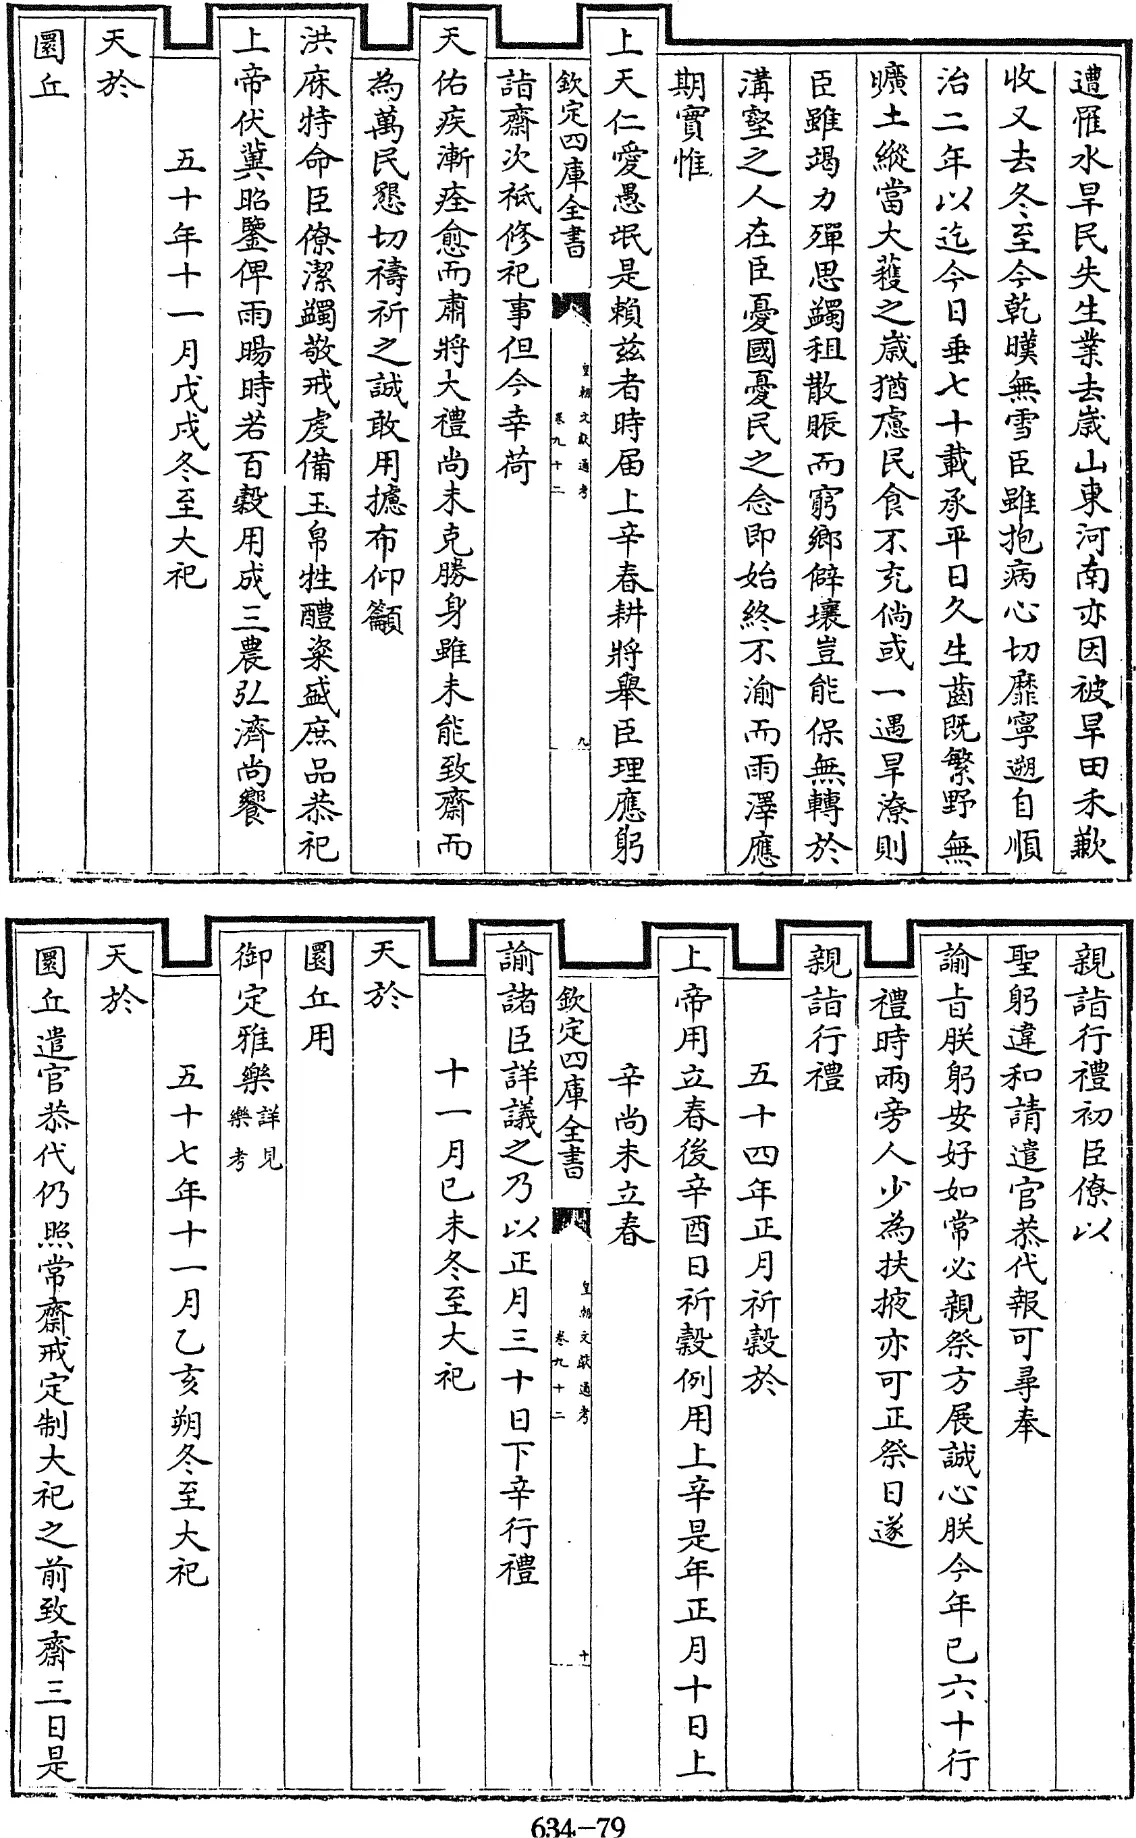 遭罹水旱民失生業去歳山東河南亦因被旱田禾歉
收又去冬至今乾暵無雪臣雖抱病心切靡寧遡自順
治二年以迄今日垂七十載承平日久生齒既繁野無
曠土縱當大穫之歳猶慮民食不充倘或一遇旱潦則
臣雖竭力殫思蠲租散賑而窮鄉僻壤豈能保無轉於
溝壑之人在臣憂國憂民之念即始終不渝而雨澤應
期實惟
上天仁愛愚氓是賴兹者時届上辛春耕將舉臣理應躬
欽定四庫全書
皇朝文獻通考
卷九十二
九
詣齋次祗修祀事但今幸荷
天佑疾漸痊愈而肅將大禮尚未克勝身雖未能致齋而
為萬民懇切禱祈之誠敢用攄布仰籲
洪庥特命臣僚潔蠲敬戒虔備玉帛牲醴粢盛庶品恭祀
上帝伏冀昭鑒俾雨暘時若百穀用成三農弘濟尚饗
五十年十一月戊戌冬至大祀
天於
圜丘
親詣行禮初臣僚以
聖躬違和請遣官恭代報可尋奉
諭旨朕躬安好如常必親祭方展誠心朕今年已六十行
禮時兩旁人少為扶掖亦可正祭日遂
親詣行禮
五十四年正月祈穀於
上帝用立春後辛酉日祈穀例用上辛是年正月十日上
辛尚未立春
欽定四庫全書
皇朝文獻通考
卷九十二
十
諭諸臣詳議之乃以正月三十日下辛行禮
十一月已未冬至大祀
天於
圜丘用
御定雅樂詳見樂考
五十七年十一月乙亥朔冬至大祀
天於
圜丘遣官恭代仍照常齋戒定制大祀之前致齋三日是
634-79